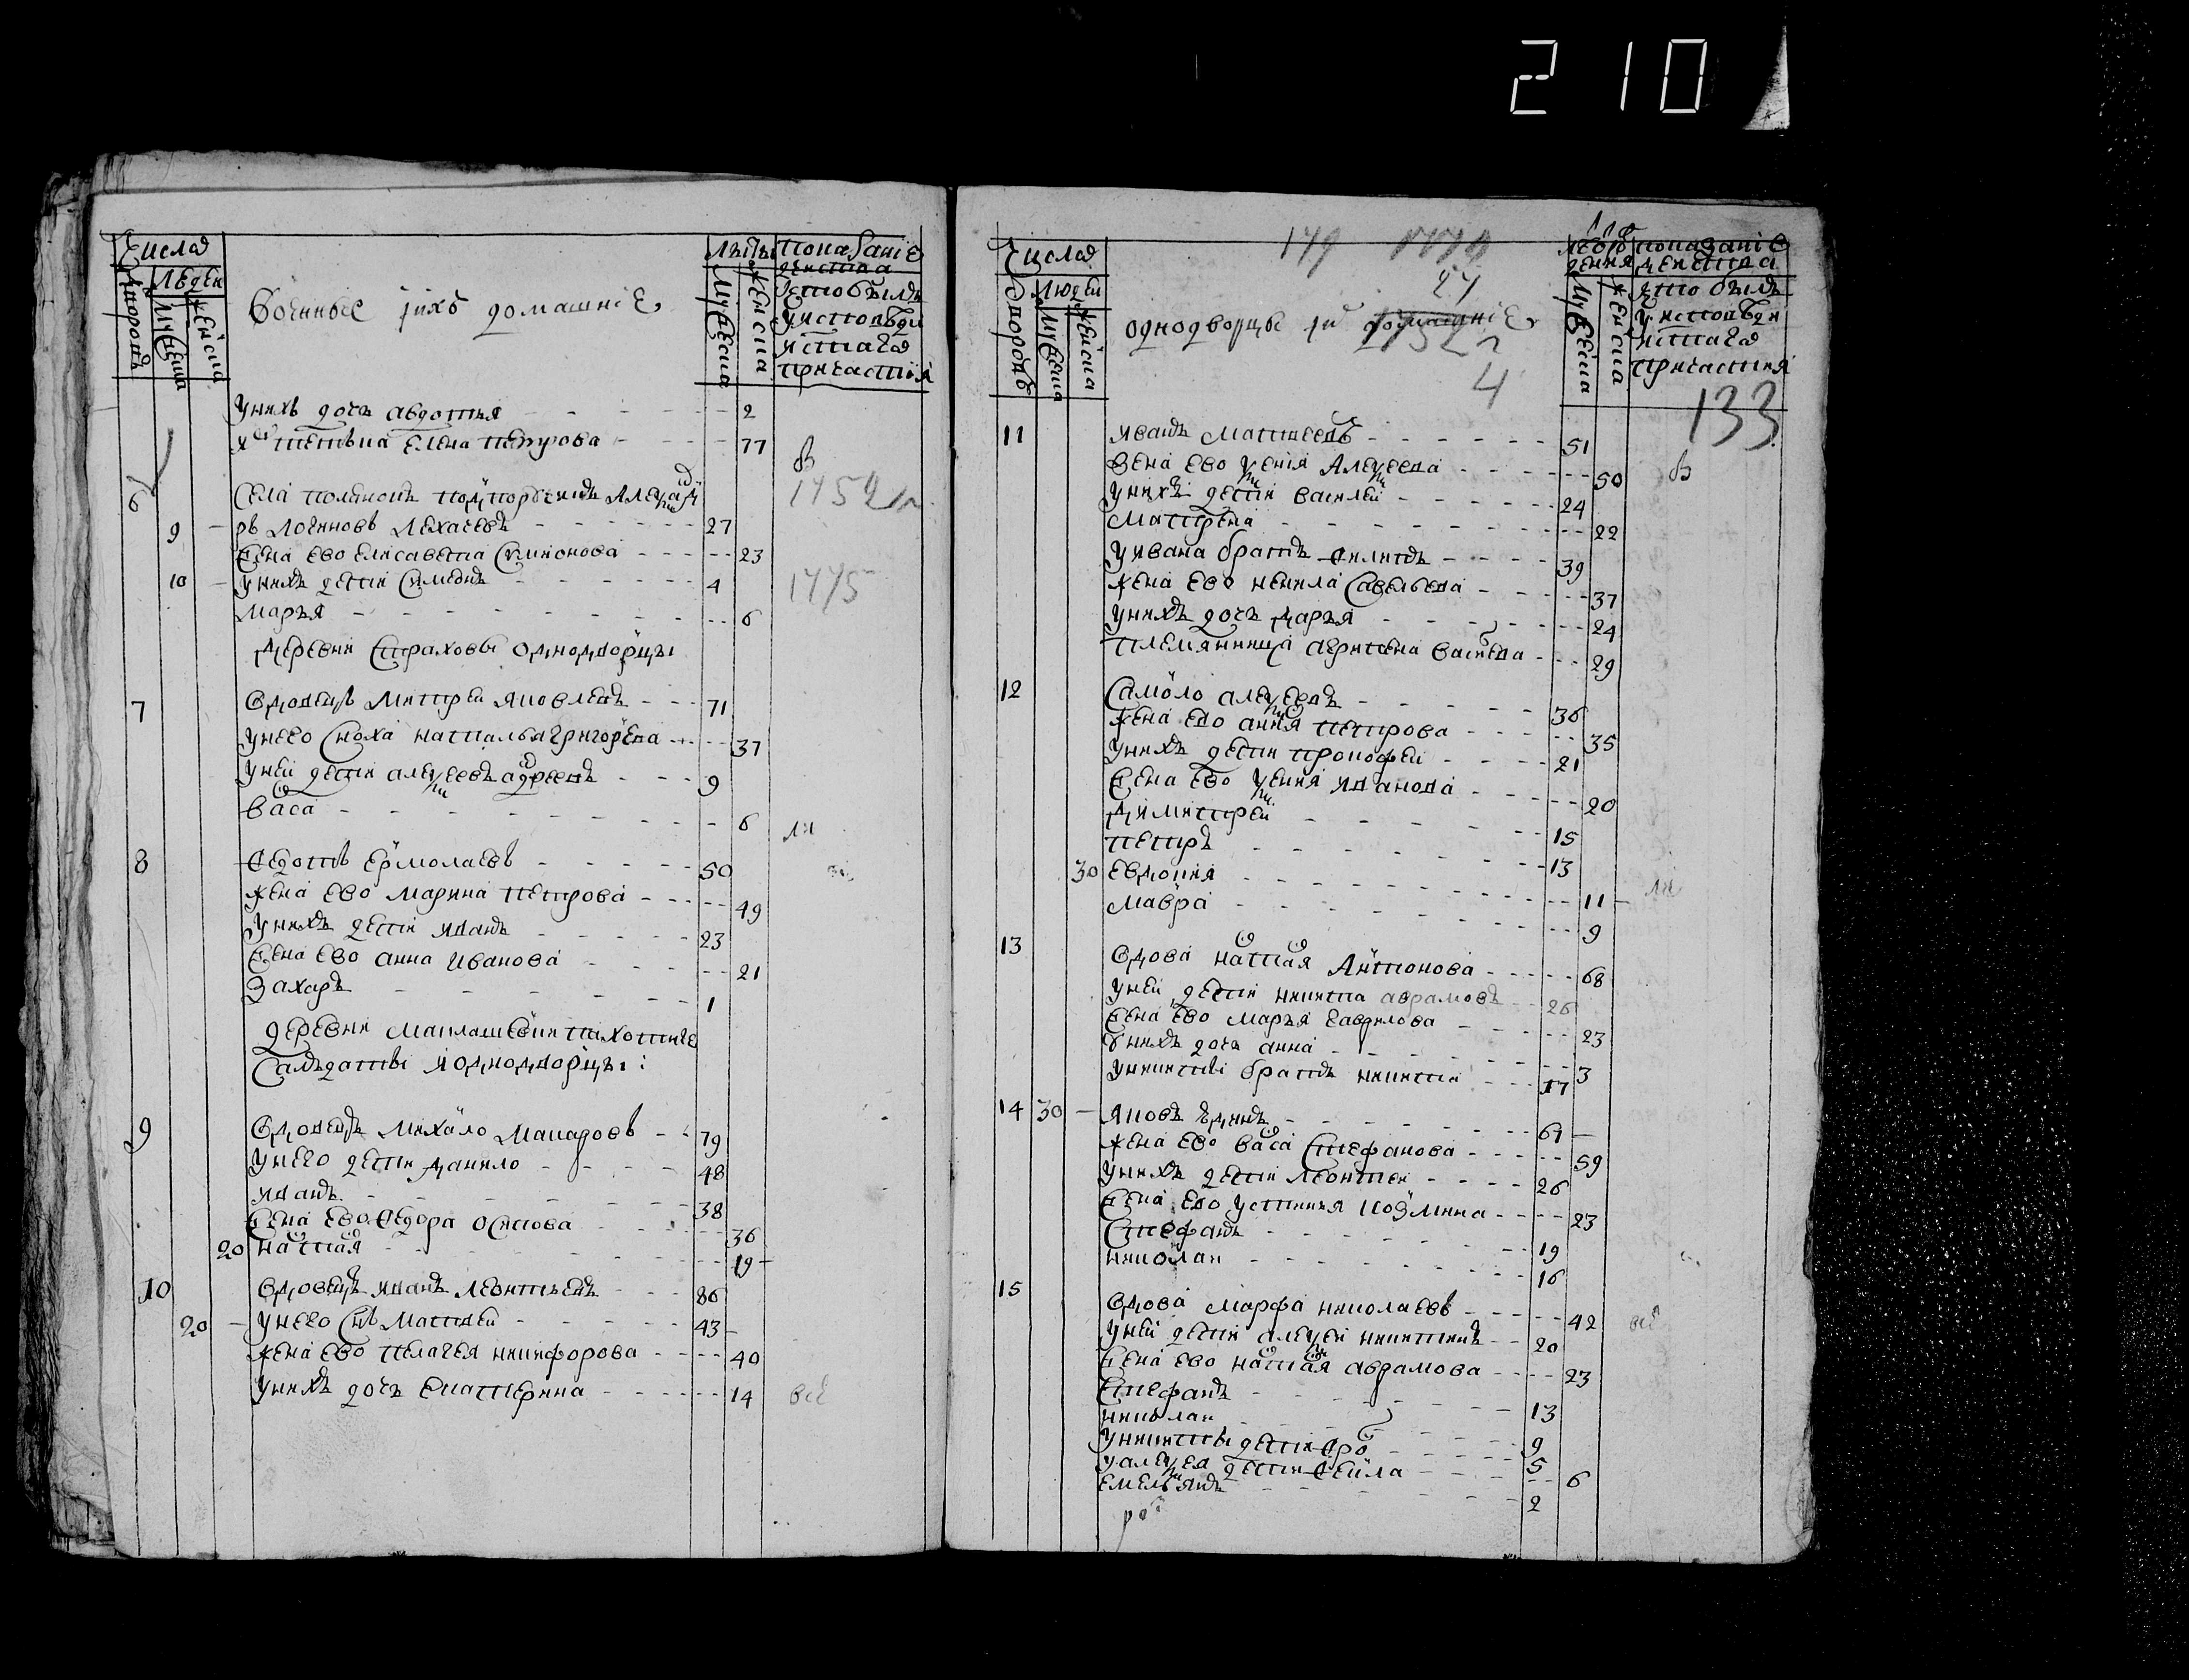 210
Числа
Людей
дворовъ
мужеска
женска
Военные ихъ домашние
Лѣты
мужеска
женска
показание
кто былъ
у исповѣди
и с таго
причастия
у нихъ дочь авдотия 2
Елена петрова 77
6
Села поляновъ подпорутчикъ Алеѯандръ
1752
9 Логиновъ Лихачевъ 27
жена ево Елисавета Симионова 23
10 у нихъ дети Симионъ 4
1775
Марья 6
деревни Страховы однодворцы
7 вдовецъ Митрей яковлевъ 71
у него сноха наталья григорева 37
у ней дети алеѯей андреевъ 9
васа 6
8 Федотъ Ермолаевъ 50
жена ево Марина петрова 49
у нихъ дети иванъ 23
жена ево анна Иванова 21
Захаръ 1
деревни пахотные
Салдаты и однодворцы:
9 вдовецъ Михайло Макаровъ 79
у него дети данило 48
иванъ 38
жена ево Федора осипова 36
20 наталя 19
10 вдовецъ иванъ Леонтьевъ 86
20 у него снъ Матвей 43
жена ево пелагея никифорова 40
у нихъ дочь Екатерина 14
всѣ
149
24
1752
4
133
Числа
Людей
дворовъ
мужеска
женска
однодворцы и домашние
мужеска
женска
показание
кто былъ
у исповѣди
и с таго
причастия
11 иванъ Матвеевъ 51
жена ево ѯения Алеѯеева 50
у нихъ дети василей 24
Матрена 22
у ивана братъ Филипъ 39
жена ево ненила Савельева 37
у нихъ дочь дарья 24
племянница агрипена васильева 29
12 Самойло алеѯеевъ 36
жена ево анна петрова 35
у нихъ дети прокофей 21
жена ево ѯения иванова 20
димитрей 15
петръ 13
30 Евдокия 11
Мавра 9
13 вдова наталя Антонова 68
у ней дети никита аврамовъ 26
жена ево Марья гаврилова 23
у нихъ дочь анна 3
у никиты братъ никита 17
14 30 яковъ 61
жена ево васа Стефанова 59
у нихъ дети Леонтей 26
жена ево устиния козмина 23
Стефанъ 19
николай 16
15 вдова марфа николаевъ 42
всѣ
у ней дети алеѯей никитинъ 20
жена ево наталя аврамова 23
Стефанъ 13
николай 9
у никиты дети Фролъ 5
у алеѯея дети Фекла 6
Емельянъ 2